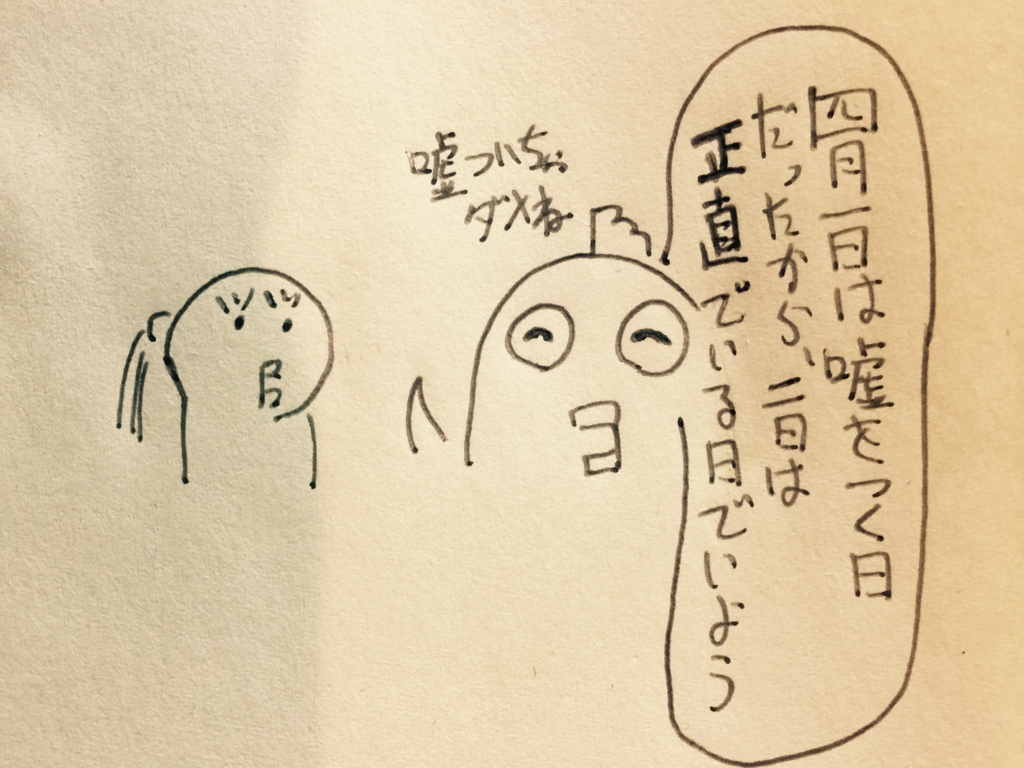 四月一日は嘘をつく日
だったから、二日は
正直でいる日でいよう
嘘ついちゃ
ダメね